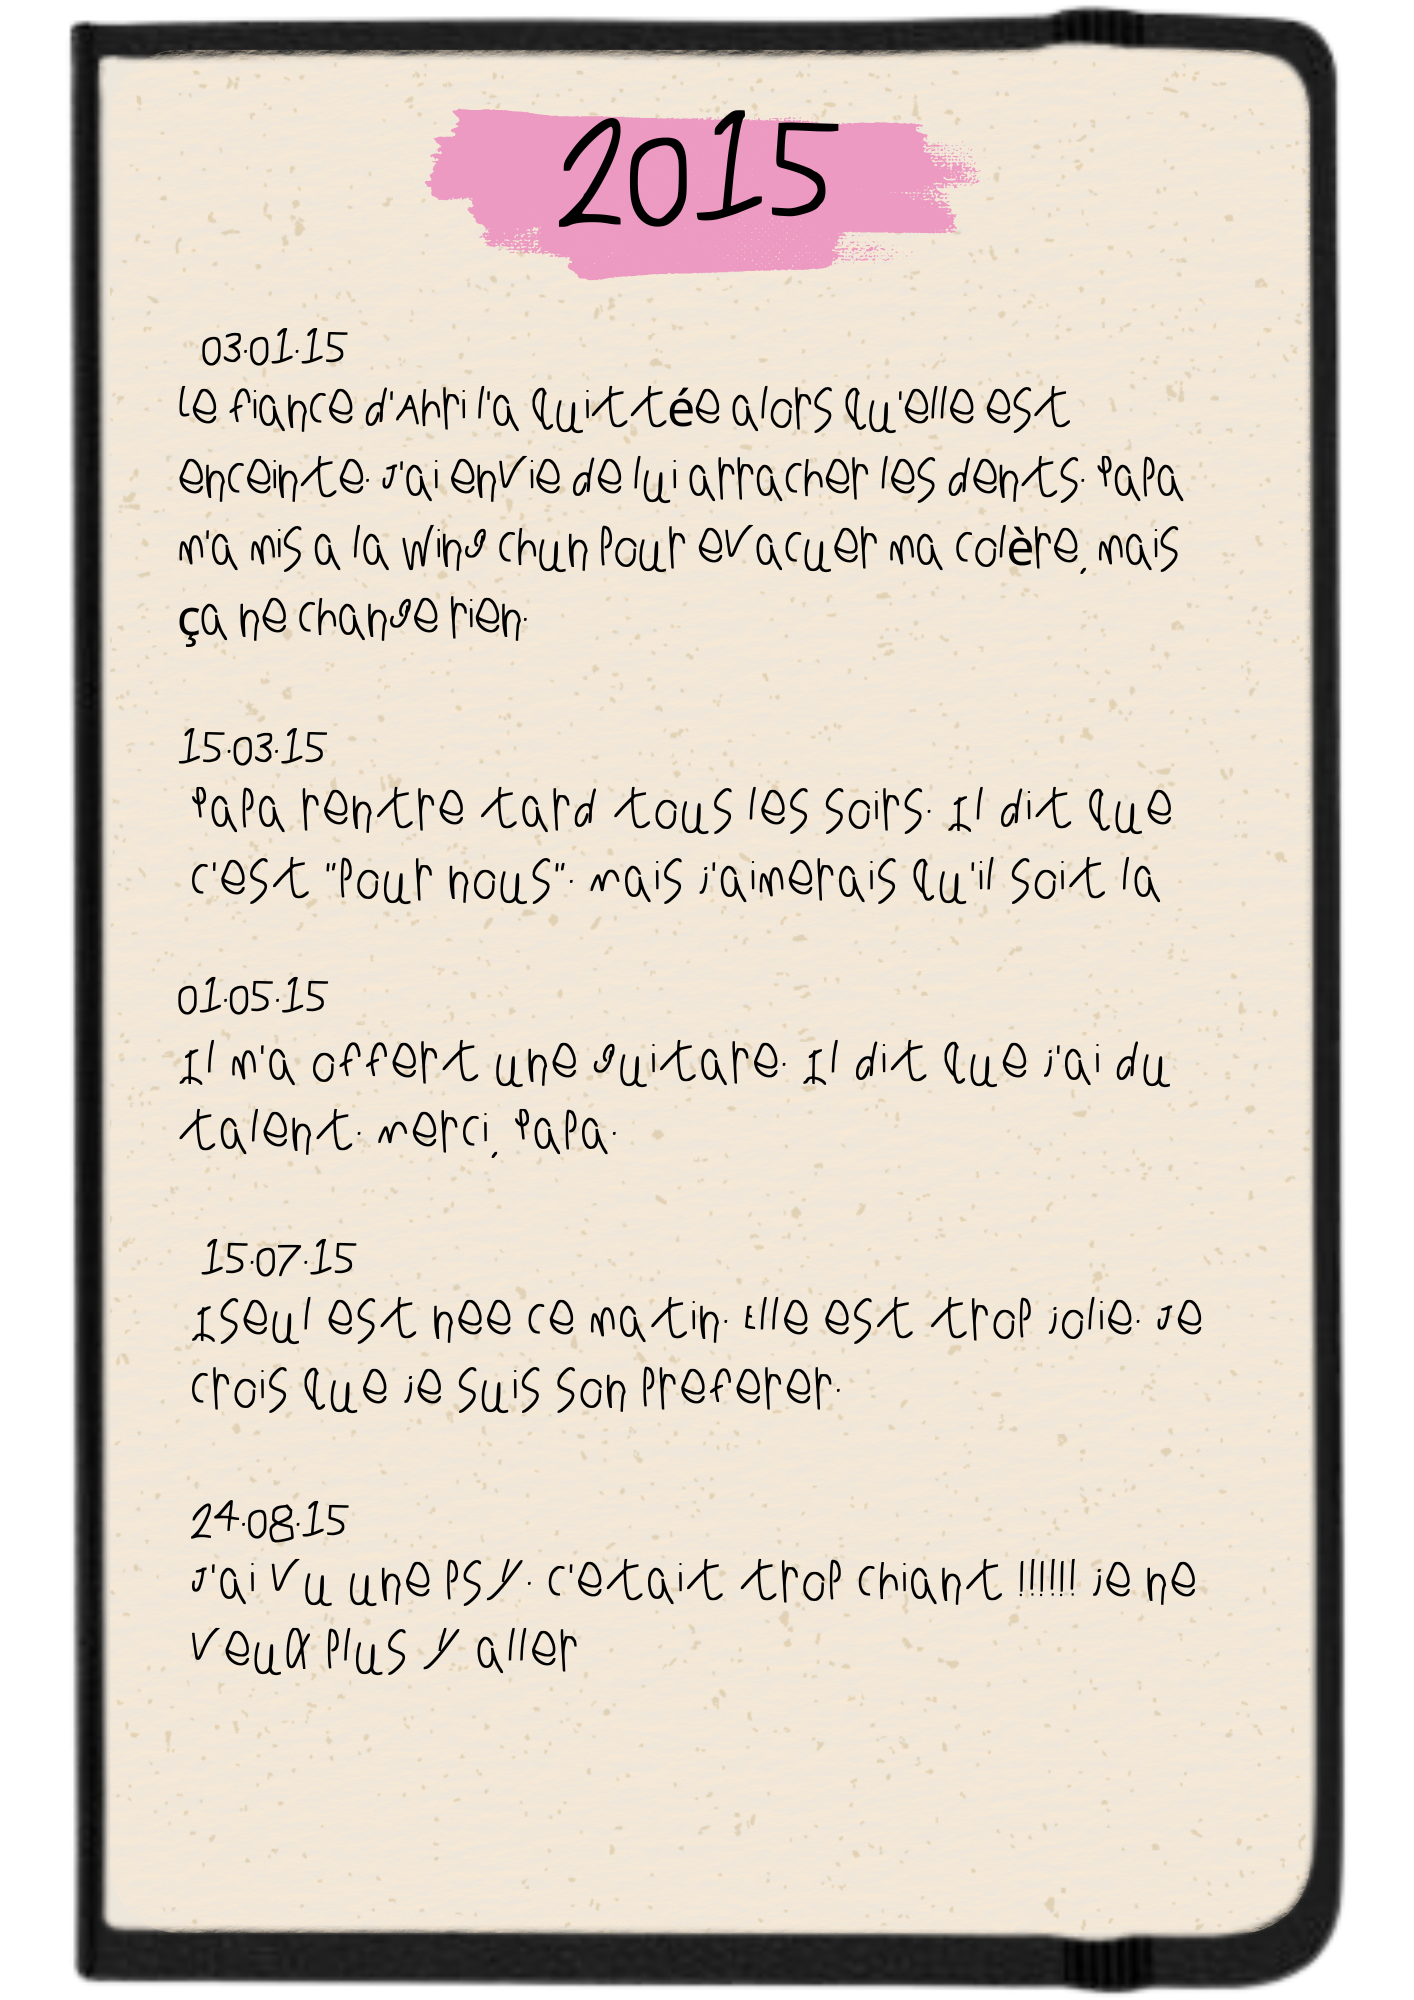 2015
03.01.15
Le fiance d'Ahri l'a quittée alors qu'elle est
enceinte. J'ai envie de lui arracher les dents. Papa
m'a mis a la Wing chun pour evacuer ma colère, mais
ça ne change rien.
15.03.15
Papa rentre tard tous les soirs. Il dit que
c'est "pour nous". Mais j'aimerais qu'il soit la
01.05.15
Il m'a offert une guitare. Il dit que j'ai du
talent. Merci, Papa.
15.07.15
Iseul est nee ce matin. Elle est trop jolie. Je
crois que je suis son preferer.
24.08.15
J'ai vu une psy. c'etait trop chiant !!!!!! je ne
veux plus y aller